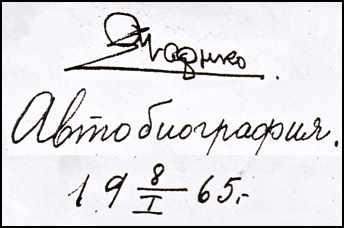 Автобиография.
19 8/I 65.-